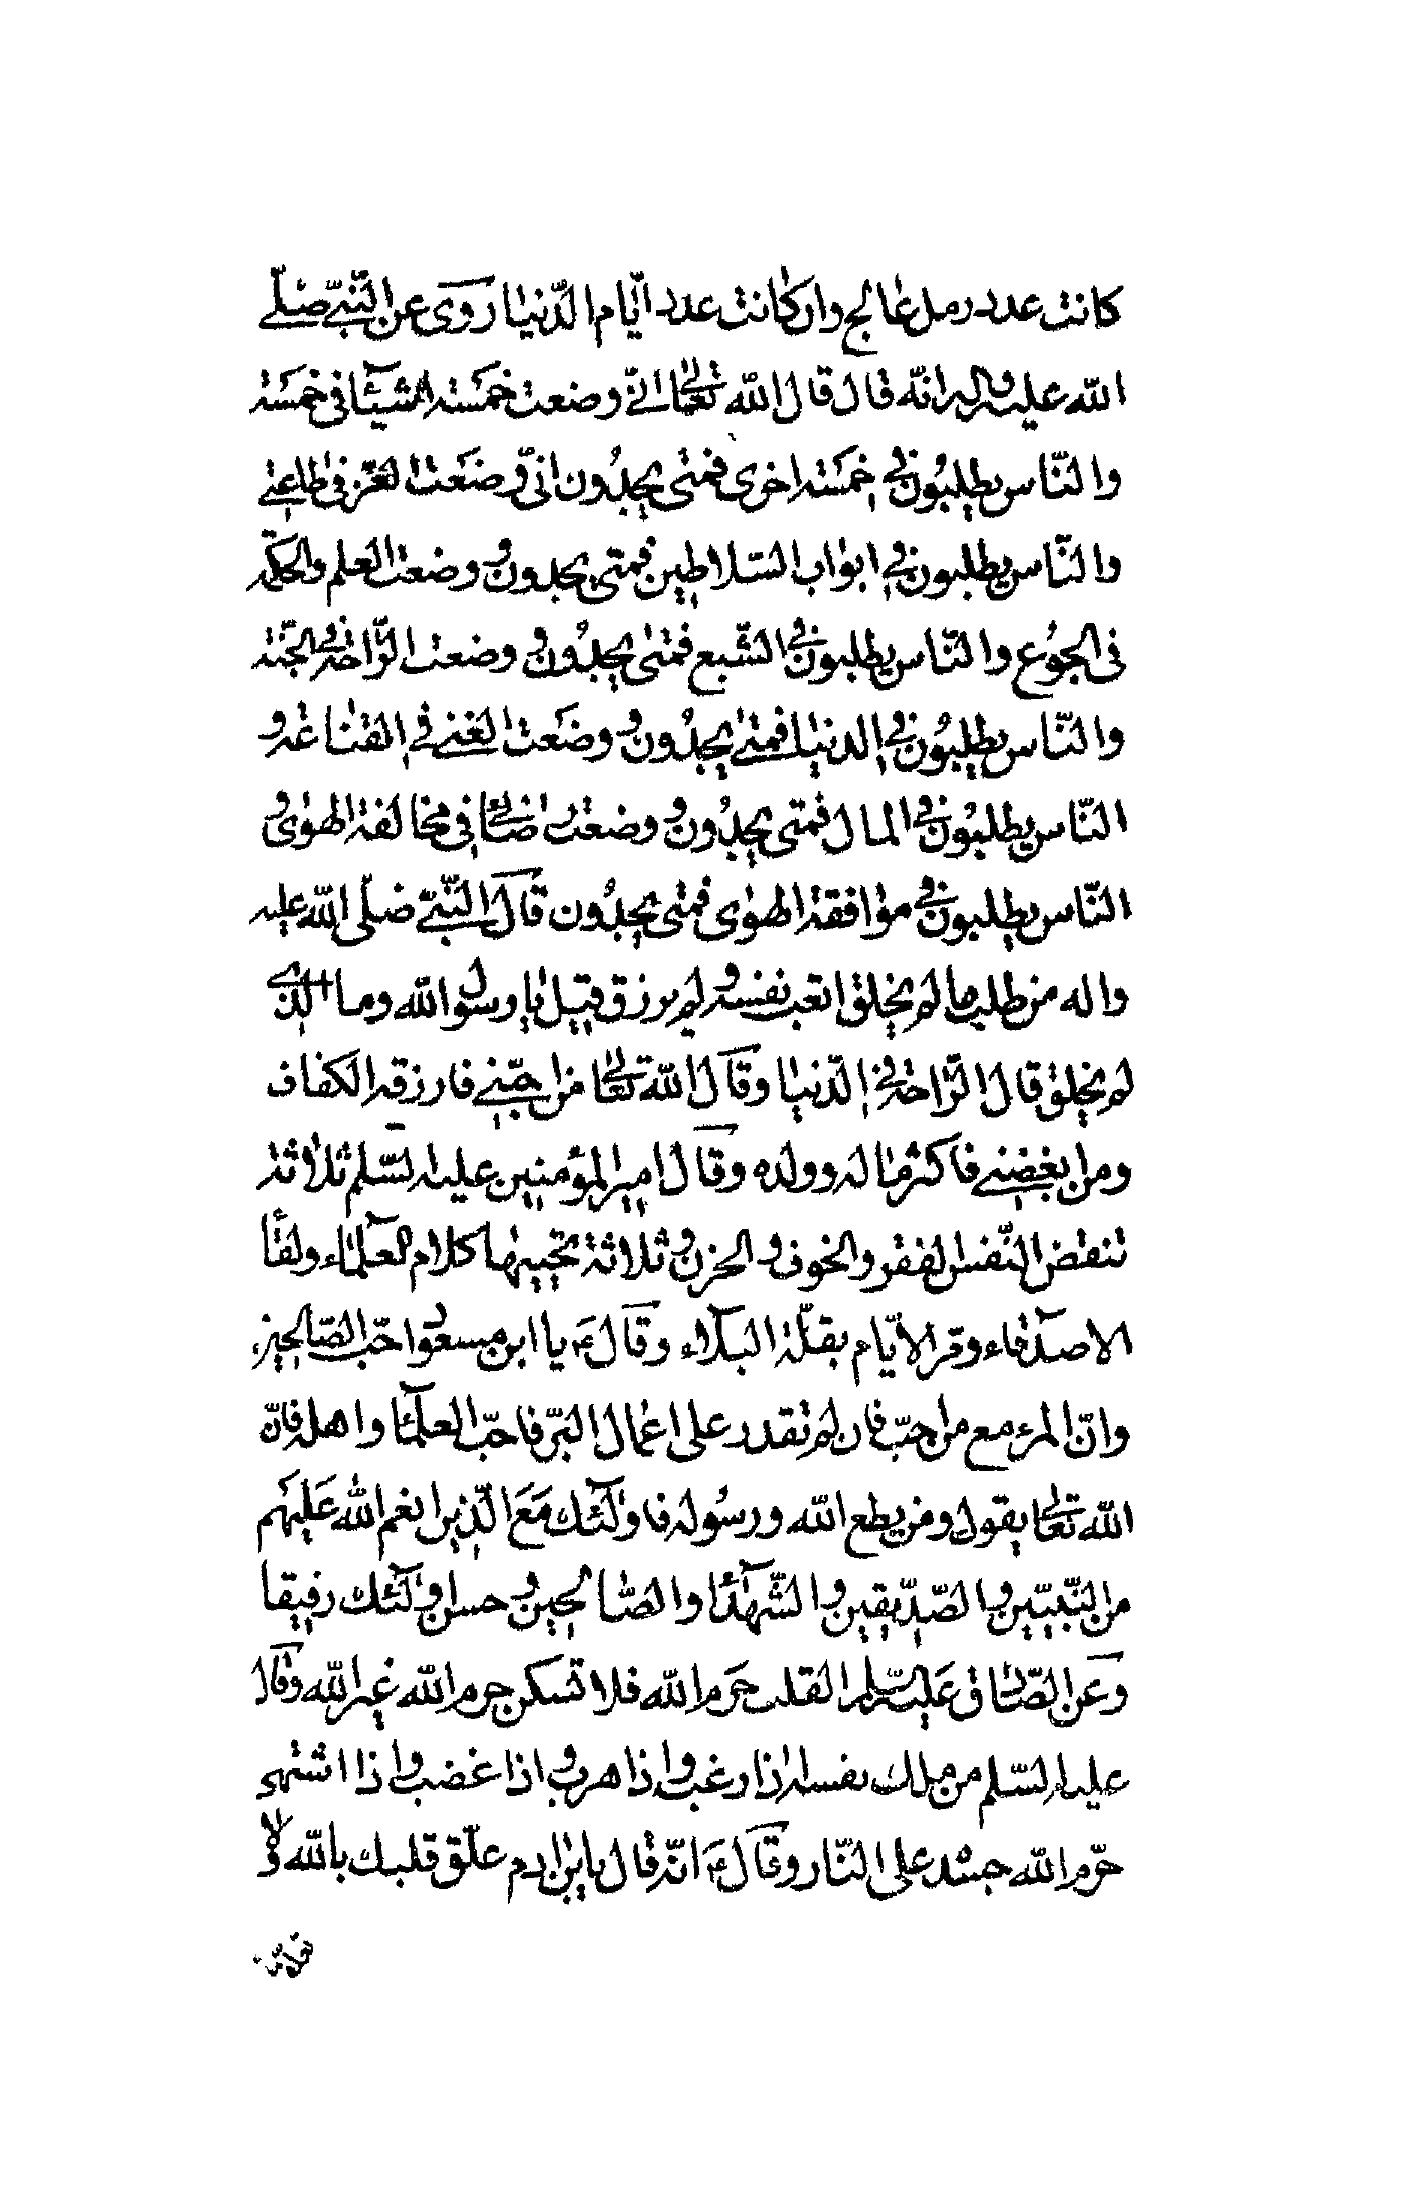 كانت عدد رمل عالج وان كانت عدد ايّام الدّنيا روى عن النّبيّ صلّى
الله عليه واله انّه قال قال الله تعالى انّى وضعت خمسة اشيآء فى خمسة
والنّاس يطلبون فى خمسة اخرى فمتى يجدُون انّى وضعت العزّ فى طاعتى
والنّاس يطلبون فى ابواب السّلاطين فمتى يجدون و وضعت العلم والحكمة
فى الجوُع والنّاس يطلبون فى الشّبع فمتى يجدُون و وضعت الرّاحة فى الجنّة
والنّاس يطلبُون فى الدنيا فمتى يجدُون و وضعت الغنى فى القناعة و
النّاس يطلبُون فى المال فمتى يجدُون و وضعت رضائى فى مخالفة الهوى و
النّاس يطلبون فى موافقة الهوى فمتى يجدُون قال النّبىّ صلّى الله عليه
واله من طلب ما لم يخلق اتعب نفسه و لم يرزق قيل يا رسول الله وما الّذى
لم يخلق قال الرّاحة فى الدّنيا وقال الله تعالى من احبّنى فارزقه الكفاف
ومن ابغضنى فاكثر ماله وولده وقال امير المؤمنين عليه السّلم ثلاثة
تنقض النّفس الفقر والخوف و الحزن و ثلاثة تحييها كلام العلمآء ولقآء
الاصدقاء ومرّ الايّام بقلّة البلآء وقال ع يا ابن مسعود احبّ الصّالحين
وانّ المرء مع من احبّ فان لم تقدر على اعمال البرّ فاحبّ العلمآء واهله فانّ
الله تعالى يقول ومن يطع الله ورسُوله فاولٓئك مَعَ الّذين انعم الله عَليهم
من النّبيّين و الصّدّيقين و الشّهدآء والصّالحين و حسن اولٓئك رفيقا
وعن الصّادق عَليه السّلم القلب حَرم الله فلا تسكن حرم الله غير الله وقال
عليه السّلم من ملك نفسه اذا رغب واذا هرب و اذا غضب واذا اشتهى
حرّم الله جسده على النّار وقال ع انّه قال يا بن ادم علّق قلبك بالله ولا